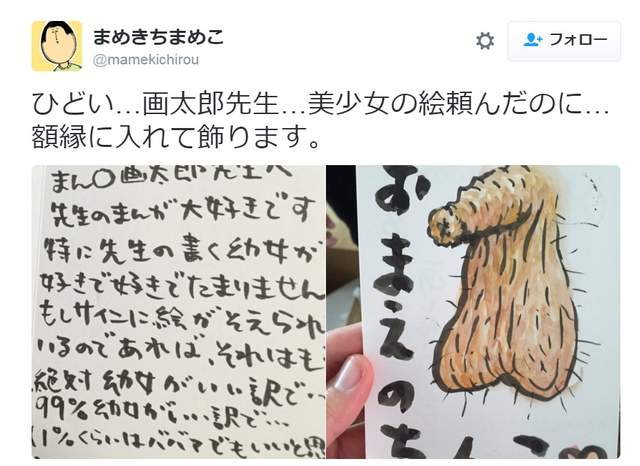 まめきちまめこ
@mamekichirou
フォロー
ひどい…画太郎先生…美少女の絵頼んだのに…
額縁に入れて飾ります。
まん〇画太郎先生へ
先生のまんが大好きです
特に先生の書く幼女が
好きで好きでたまりません
もしサインに絵がそえられ
いるのであれば、それはも
絶対幼女がいい訳で…
99%幼女がいい訳で…
1%くらいはババアでもいいと思
おまえのち